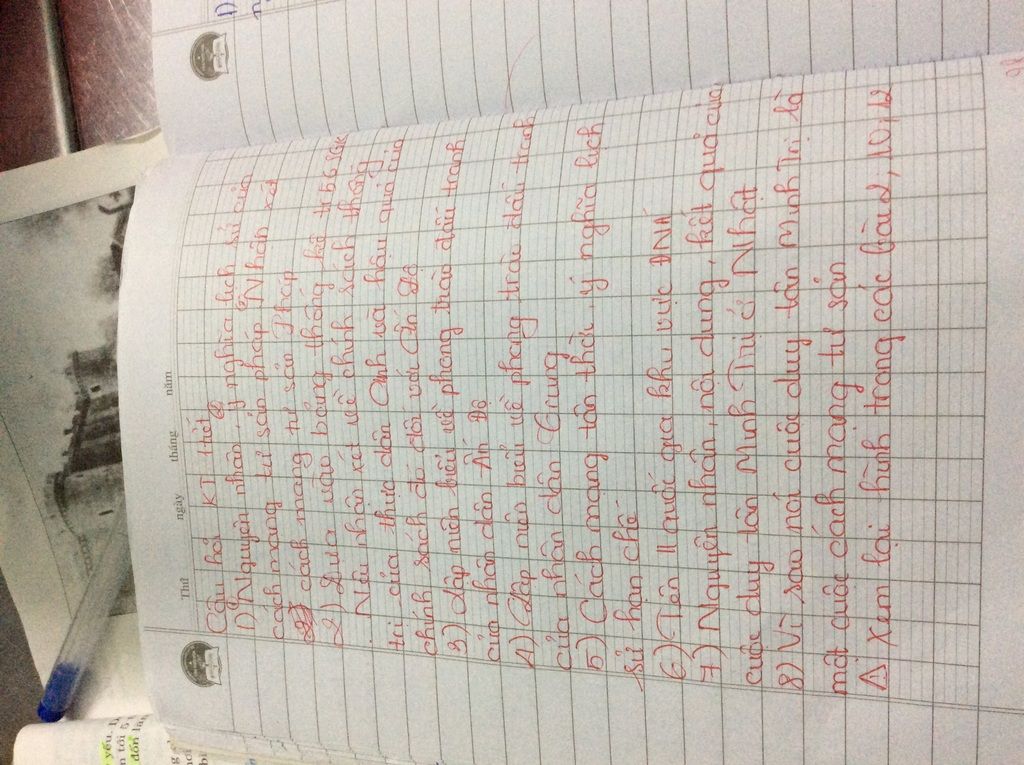 Thứ ngày tháng năm
Câu hỏi KT 1 tiết
1) Nguyên nhân, ý nghĩa lịch sử của
cách mạng tư sản pháp. Nhận xét
cách mạng tư sản Pháp
2) Dựa vào bảng thống kê tr56 SGK
Nêu nhận xét về chính sách thống
trị của thực dân Anh và hậu quả của
chính sách đó đối với Ấn Độ
3) Lập niên biểu về phong trào đấu tranh
của nhân dân Ấn Độ
4) Lập niên biểu về phong trào đấu tranh
của nhân dân Trung
5) Cách mạng tân hợi, ý nghĩa lịch
sử hạn chế
6) Tên 11 quốc gia khu vực ĐNÁ
7) Nguyên nhân, nội dung, kết quả của
cuộc duy tân Minh Trị ở Nhật
8) Vì sao nói cuộc duy tân Minh Trị là
một cuộc cách mạng tư sản
Xem lại hình trong các bài 2, 10, 12
yếu.
đốn